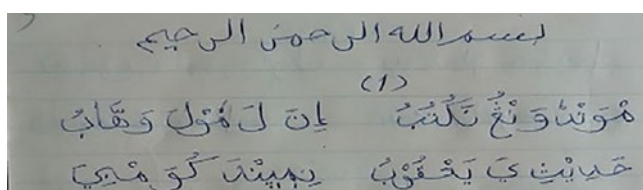 بسم الله الرحمن الرحيم
(1)
مْوَنْدَ وَنْغُ نَكُتُبُ إِنَ لَ مَوْلَ وَهَّابُ
حَدِيْثِ يَ يَعْقُوْبُ نِمٖپٖنْدَ كُوَ مْبِيَ